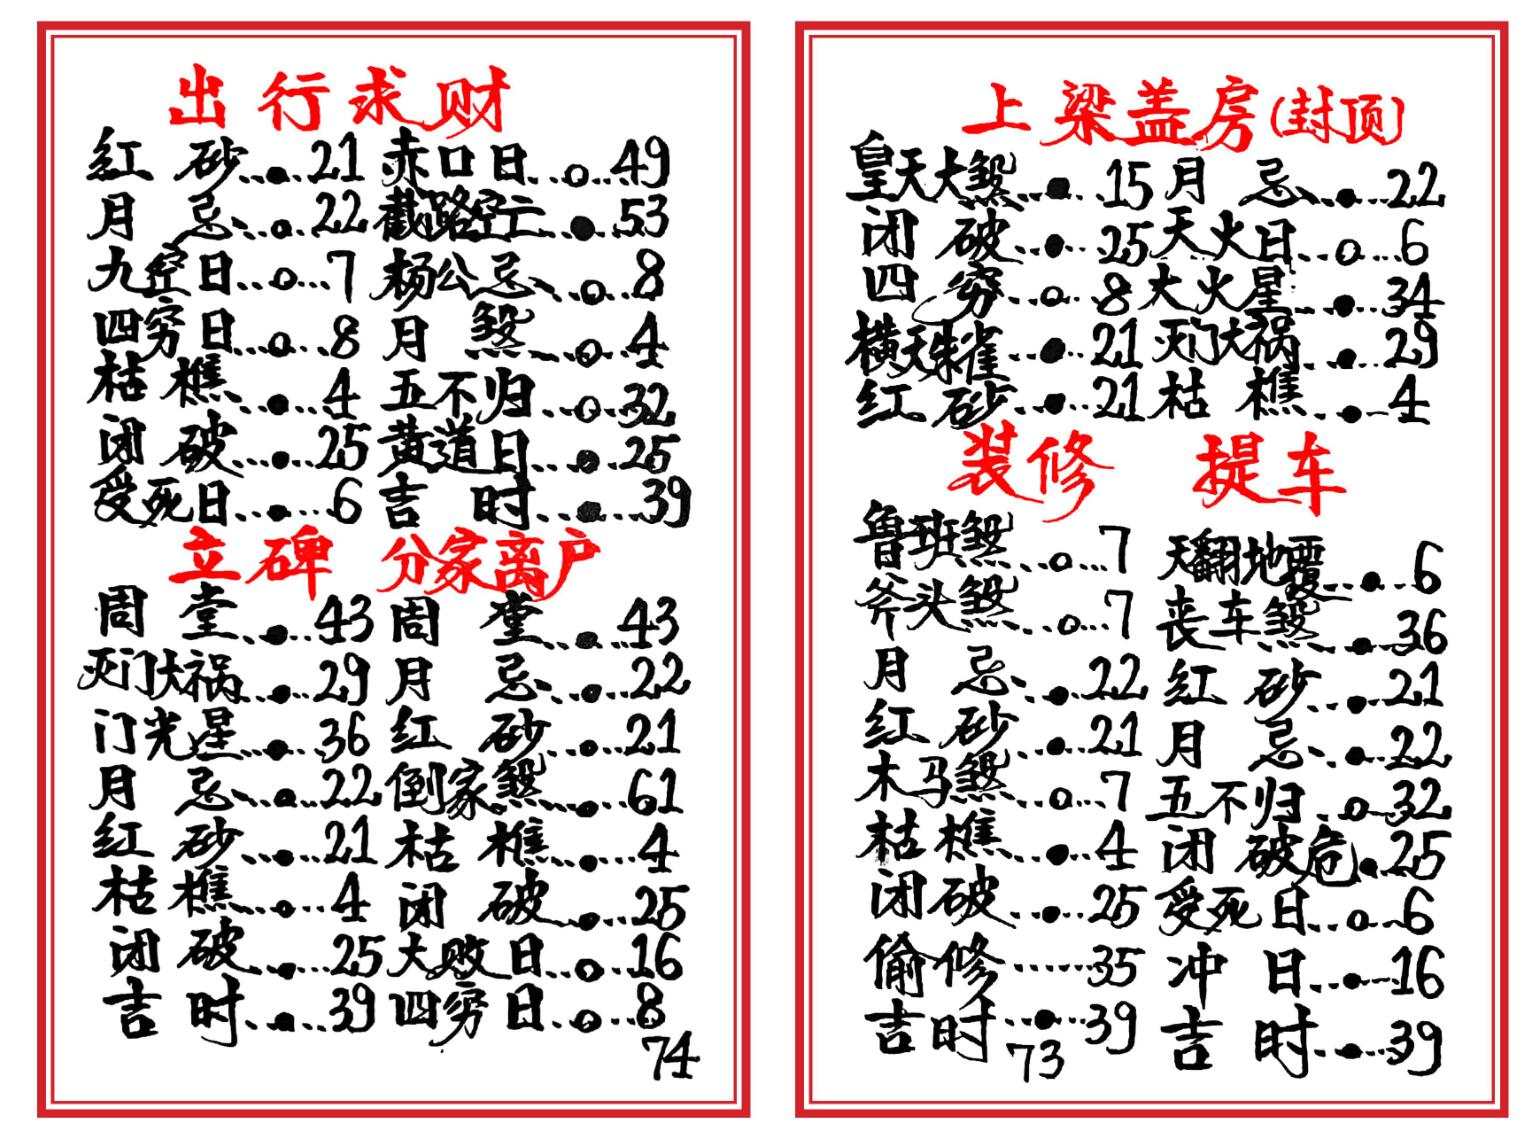 出行求财
红砂...●...21 赤口日...○...49
月忌...○...22 截路空亡...●...53
九空日...○...7 杨公忌...○...8
四穷日...○...8 月煞...○...4
枯樵...●...4 五不归...○...32
闭破...●...25 黄道日...●...25
受死日...●...6 吉时...●...39
立碑 分家离户
周堂...●...43 周堂...●...43
灭门大祸...●...29 月忌...●...22
门光星...●...36 红砂...●...21
月忌...●...22 倒家煞...●...61
红砂...●...21 枯樵...●...4
枯樵...○...4 闭破...●...25
闭破...●...25 大败日...○...16
吉时...●...39 四穷日...○...8
74
上梁盖房(封顶)
皇天大煞...●...15 月忌...●...22
闭破...●...25 天火日...○...6
四穷...○...8 大火星...●...34
横天朱雀...●...21 灭门大祸...●...29
红砂...●...21 枯樵...●...4
装修 提车
鲁班煞...○...7 天翻地覆...●...6
斧头煞...○...7 丧车煞...●...36
月忌...●...22 红砂...●...21
红砂...●...21 月忌...●...22
木马煞...○...7 五不归...○...32
枯樵...●...4 闭破危●...25
闭破...●...25 受死日...○...6
偷修......35 冲日...●...16
吉时...●...39 吉时...●...39
73